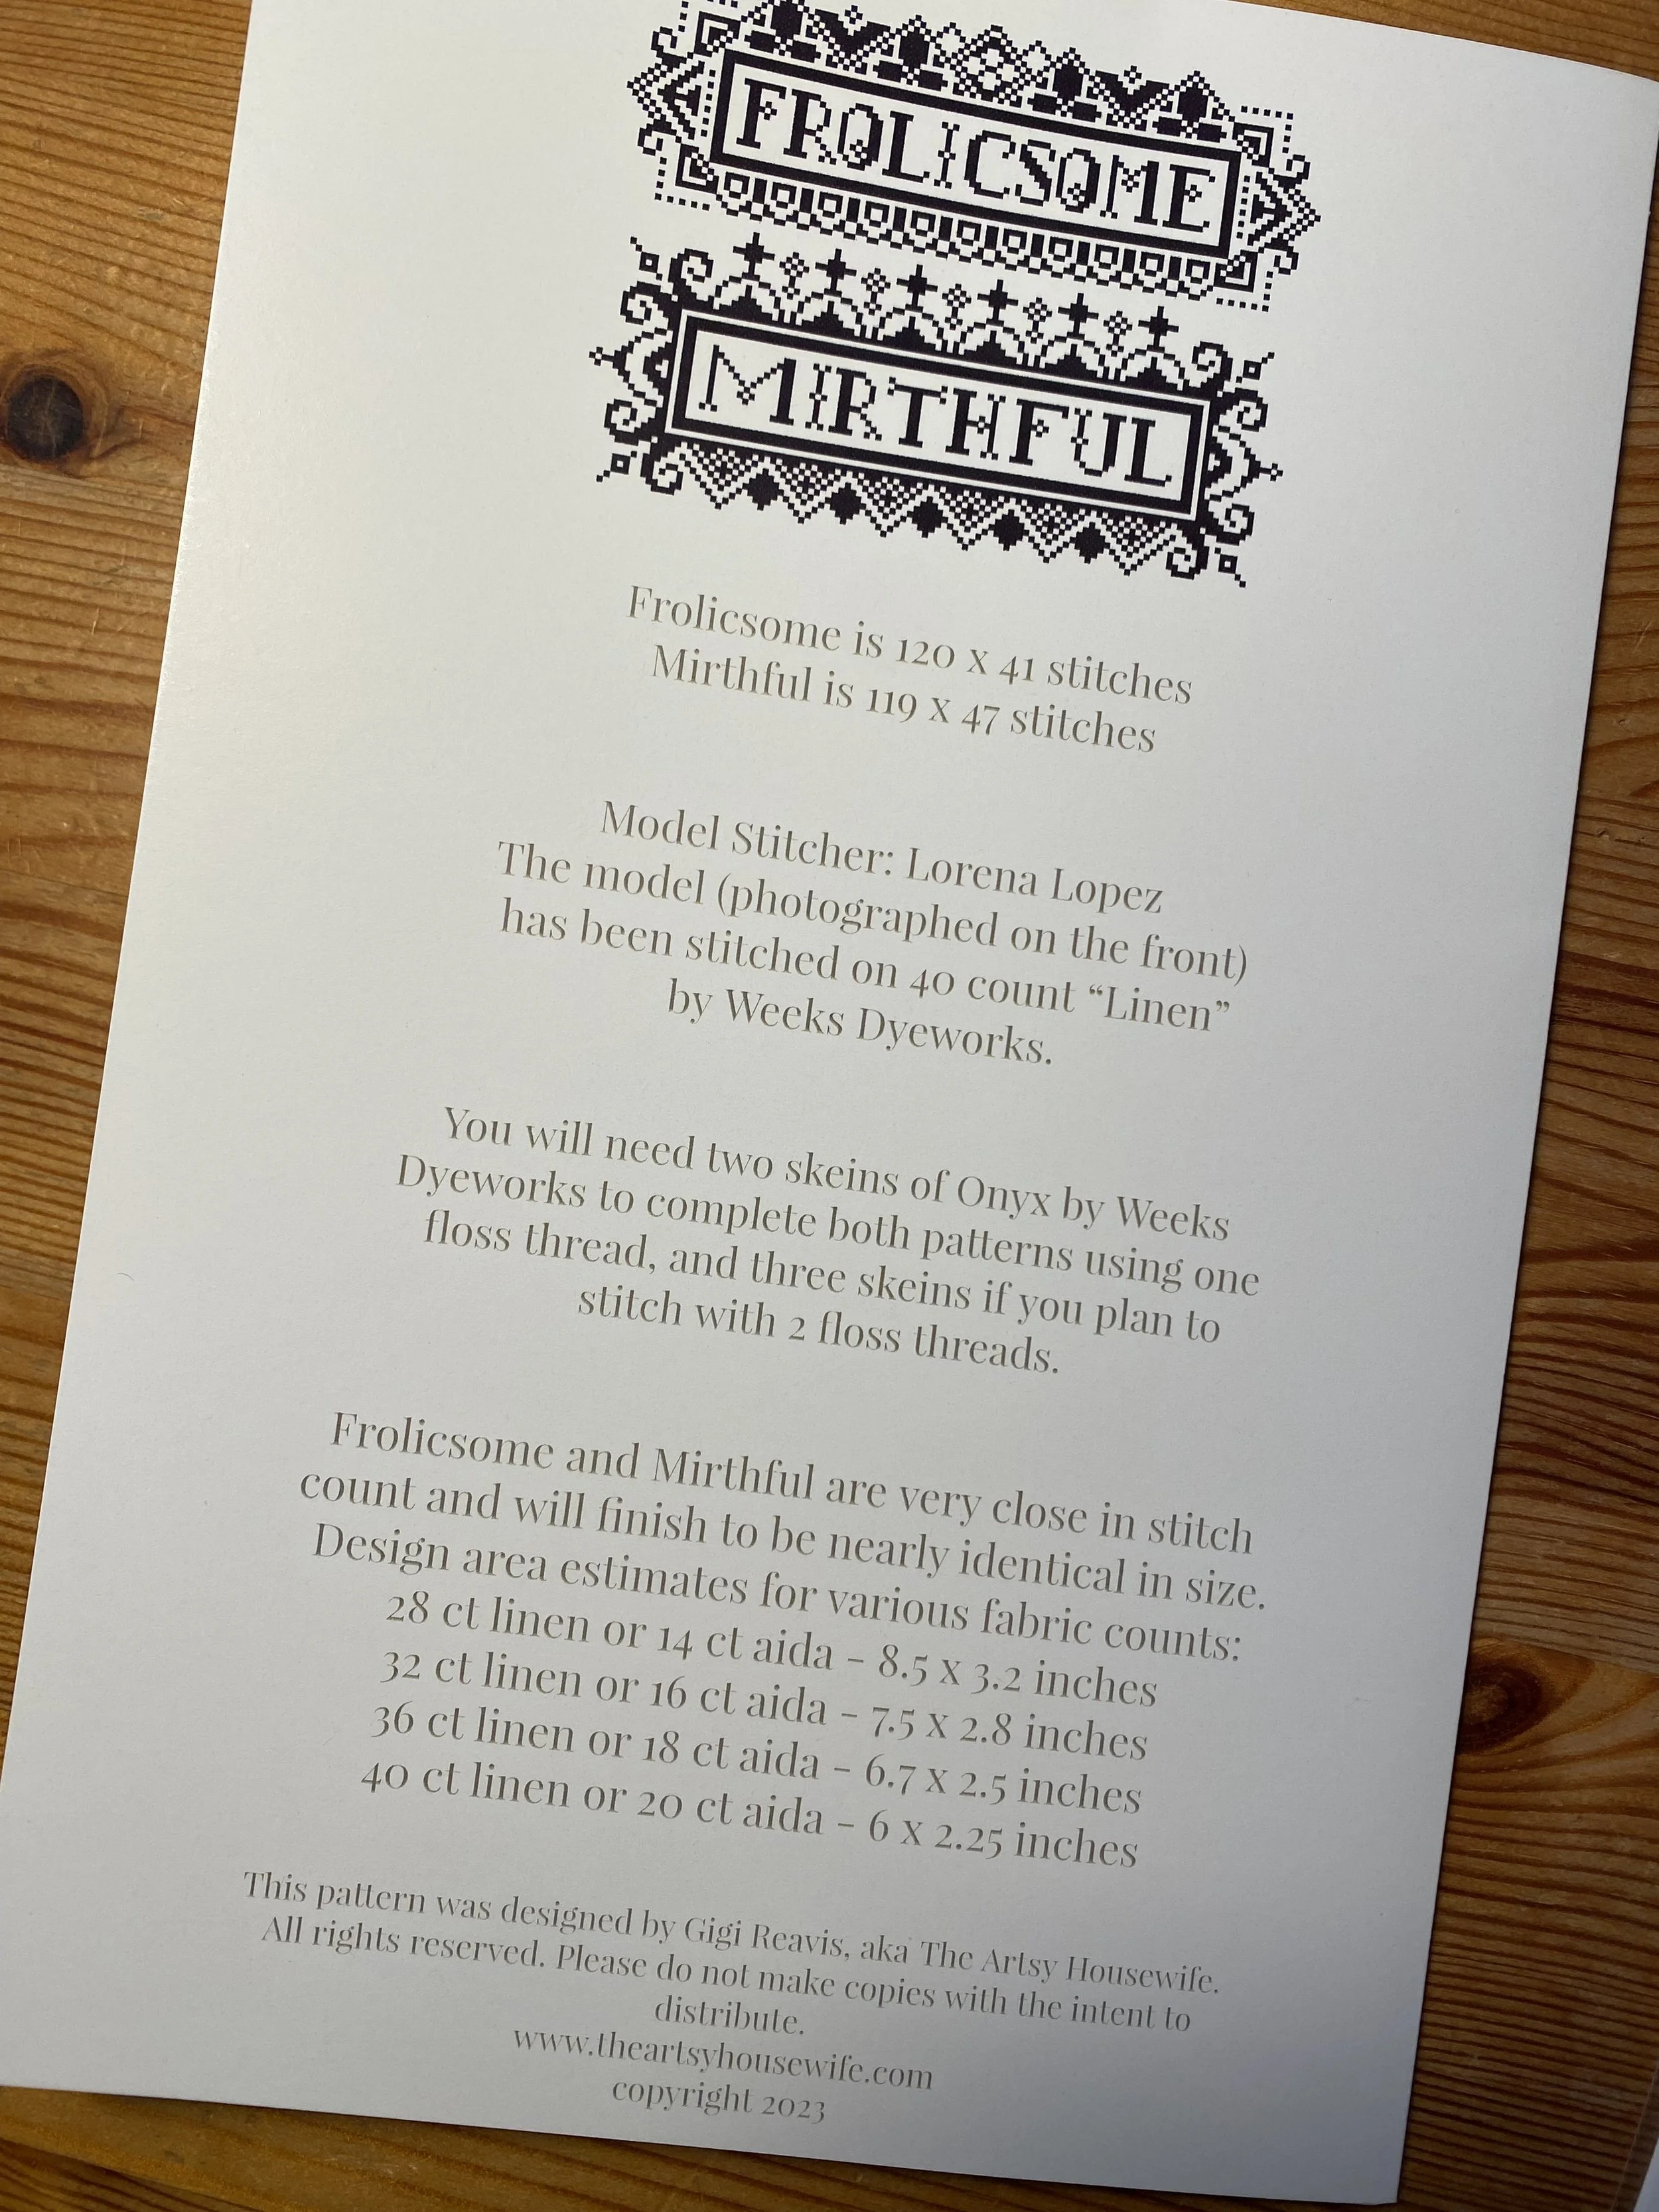 FROLICSOME
MIRTHFUL
Frolicsome is 120 x 41 stitches
Mirthful is 119 x 47 stitches
Model Stitcher: Lorena Lopez
The model (photographed on the front)
has been stitched on 40 count “Linen”
by Weeks Dyeworks.
You will need two skeins of Onyx by Weeks
Dyeworks to complete both patterns using one
floss thread, and three skeins if you plan to
stitch with 2 floss threads.
Frolicsome and Mirthful are very close in stitch
count and will finish to be nearly identical in size.
Design area estimates for various fabric counts:
28 ct linen or 14 ct aida - 8.5 x 3.2 inches
32 ct linen or 16 ct aida - 7.5 x 2.8 inches
36 ct linen or 18 ct aida - 6.7 x 2.5 inches
40 ct linen or 20 ct aida - 6 x 2.25 inches
This pattern was designed by Gigi Reavis, aka The Artsy Housewife.
All rights reserved. Please do not make copies with the intent to
distribute.
www.theartsyhousewife.com
copyright 2023